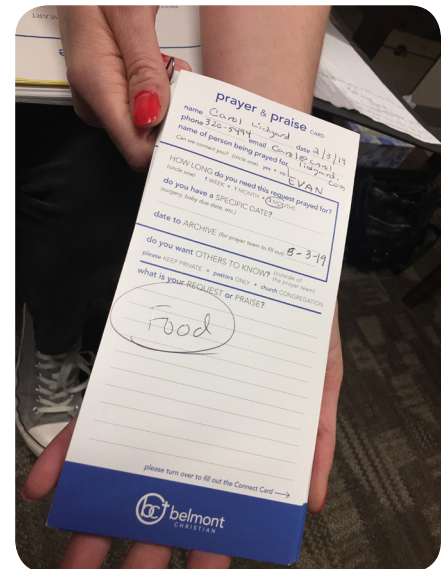 prayer & praise CARD
name Carol Lidyard date 2/3/19
phone 320-5494 email Carol@carol
lidyard.com
name of person being prayed for:
Can we contact you? (circle one) yes • no
EVAN
HOW LONG do you need this request prayed for?
(circle one) 1 WEEK • 1 MONTH • 3 MONTHS
do you have a SPECIFIC DATE?
(surgery, baby due date, etc.)
date to ARCHIVE (for prayer team to fill out) 5-3-19
do you want OTHERS TO KNOW? (outside of
the prayer team)
please KEEP PRIVATE • pastors ONLY • church CONGREGATION
what is your REQUEST or PRAISE?
Food
please turn over to fill out the Connect Card
bc belmont
CHRISTIAN